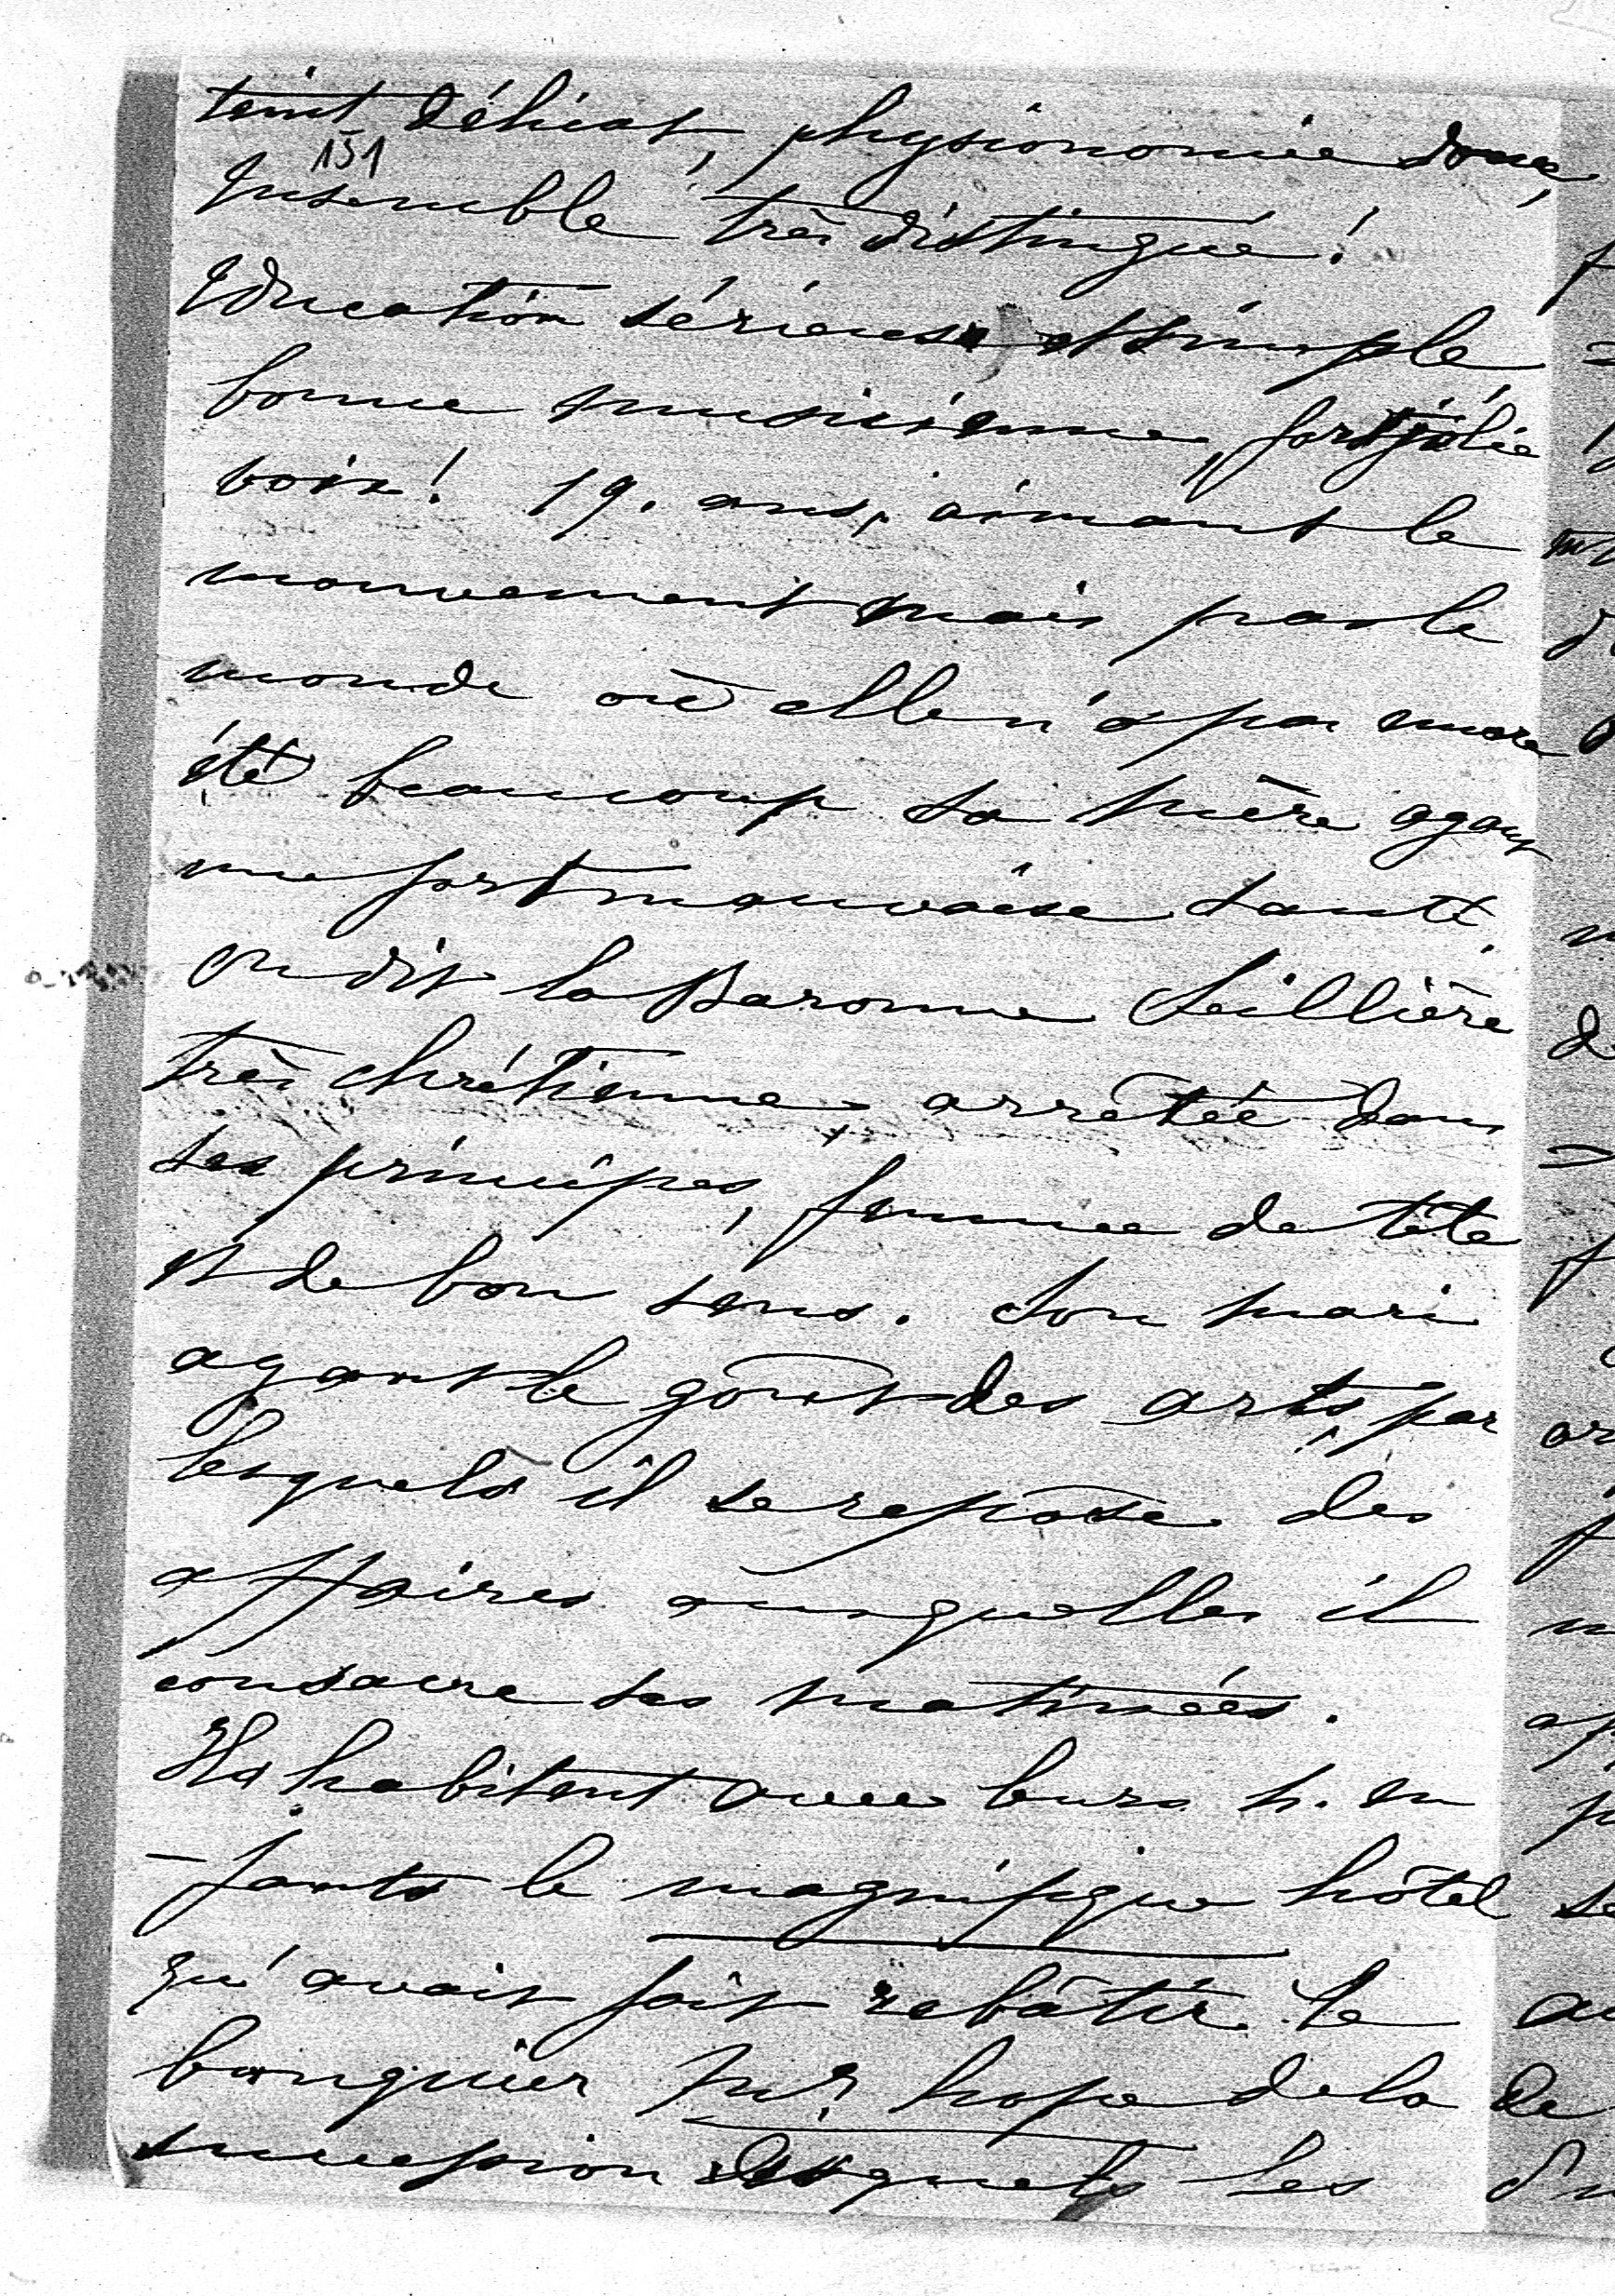 teint délicat, physionomie douce,
151
Ensemble très distingué !
Education sérieuse et simple
bonne musicienne, fort jolie
voix ! 19. ans, aimant le
mouvement mais pas le
monde où elle n'a pas encore
été beaucoup sa mère ayant
une fort mauvaise santé.
on dit la Baronne Seillière
très chrétienne, arrêtée dans
ses principes, femme de tête
et de bon sens. Son mari
ayant le goût des arts, par
lesquels il se repose des
affaires auxquelles il
consacre ses matinées.
Ils habitent avec leurs h. en
-fants le magnifique hôtel
qu'avait fait rebâtir le
banquier Mr. hope de la
succession desquels les